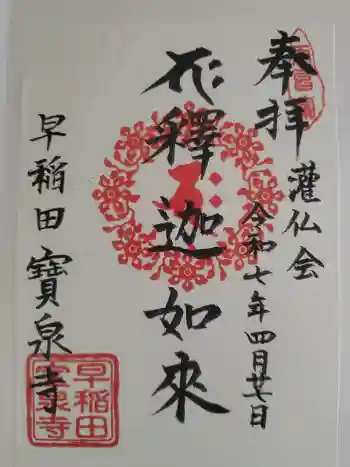 奉拝
灌仏会
令和七年四月廿日
釋迦如來
早稲田 寶泉寺
早稲田
寶泉寺